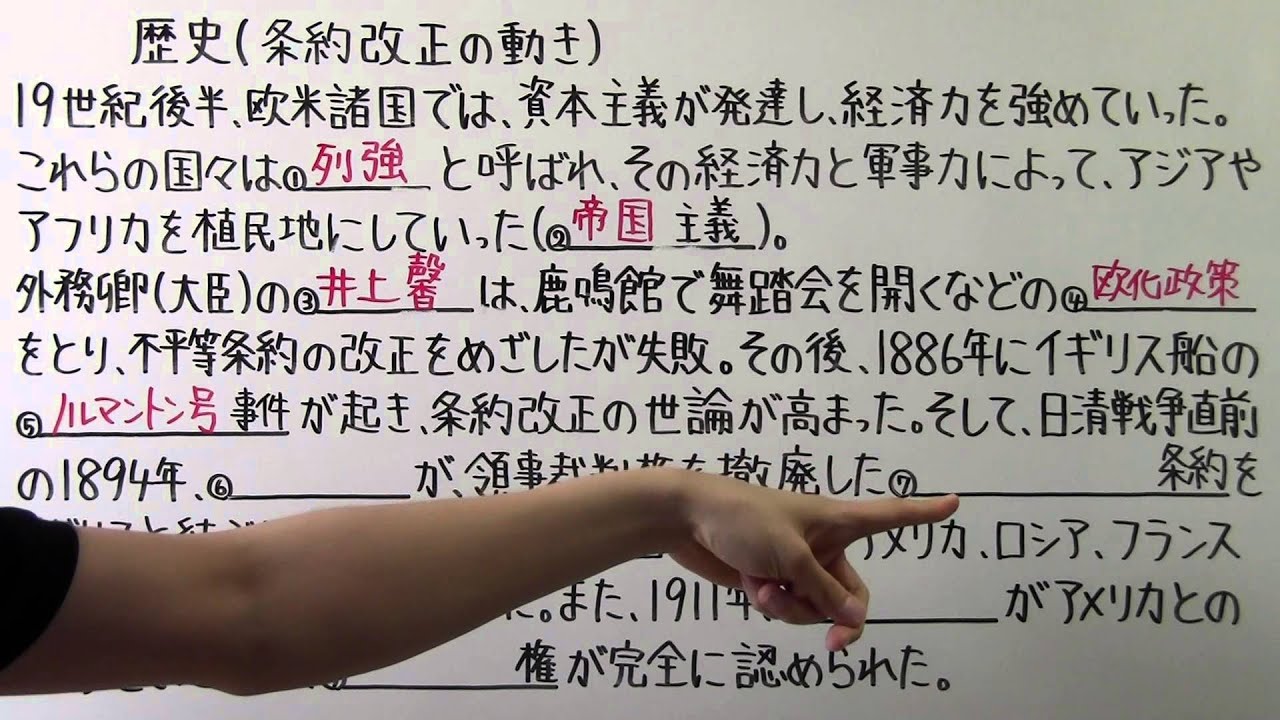 歴史(条約改正の動き)
19世紀後半、欧米諸国では、資本主義が発達し、経済力を強めていった。
これらの国々は①列強と呼ばれ、その経済力と軍事力によって、アジアや
アフリカを植民地にしていった(②帝国主義)。
外務卿(大臣)の③井上馨は、鹿鳴館で舞踏会を開くなどの④欧化政策
をとり、不平等条約の改正をめざしたが失敗。その後、1886年にイギリス船の
⑤ノルマントン号事件が起き、条約改正の世論が高まった。そして、日清戦争直前
の1894年、⑥ が、領事裁判権を撤廃した⑦ 条約を
アメリカ、ロシア、フランス
た。また、1911年、 がアメリカとの
権が完全に認められた。